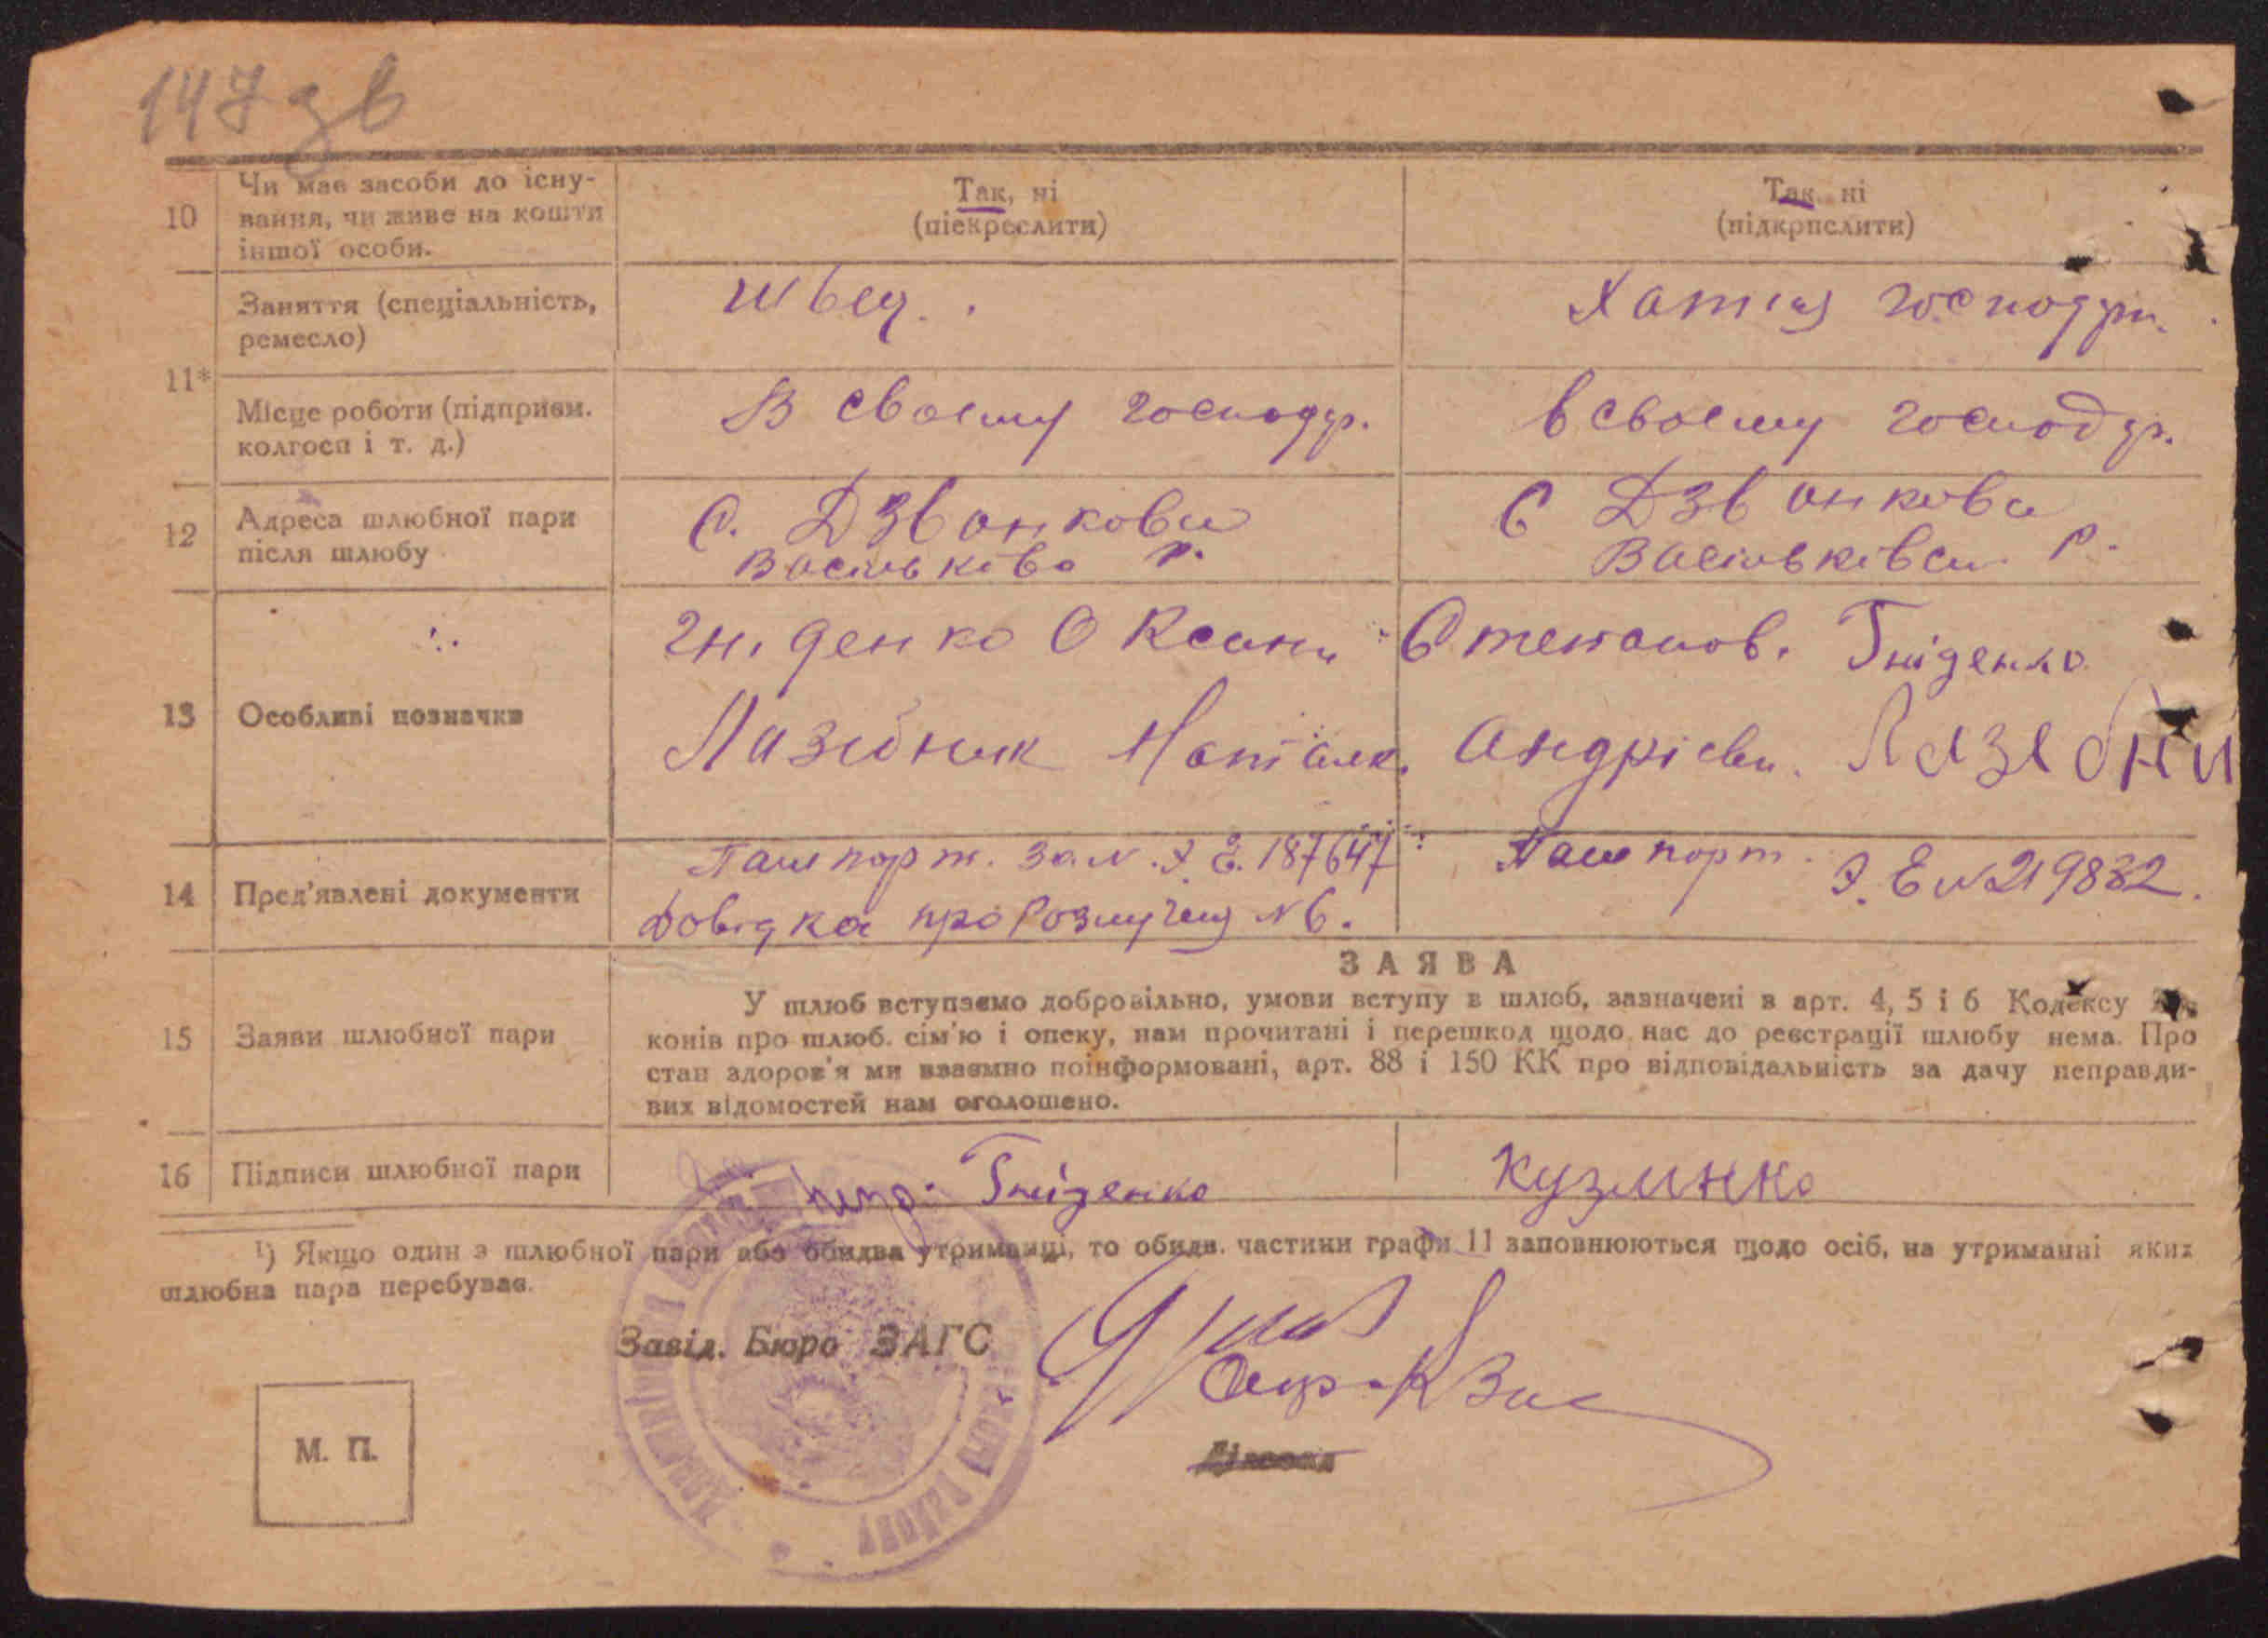 147 зв
10
Чи має засоби до існу-
вання, чи живе на кошти
іншої особи.
Так, ні
(піекреслити)
Так, ні
(підкрпслити)
11*
Заняття (спеціальність,
ремесло)
швец.
Хатня господрн.
Місце роботи (підприєм.
колгосп і т. д.)
В своєму господр.
в своєму господр.
12
Адреса шлюбної пари
після шлюбу
С. Дзвонкова
Васильківс. р.
С Дзвонкова
Васильківск. р.
13
Особливі позначки
Гніденко Оксани Степанов. Гніденко
Лазебник Наталк. Андрієвн. Лазебни
14
Пред'явлені документи
Пашпорт. за N. Э. Е. 187647
Довідка про Розлучення N 6.
Пашпорт. Э. Е N 219832.
15
Заяви шлюбної пари
ЗАЯВА
У шлюб вступаємо добровільно, умови вступу в шлюб, зазначені в арт. 4, 5 і 6 Кодексу За-
конів про шлюб. сім'ю і опеку, нам прочитані і перешкод щодо нас до реєстрації шлюбу нема. Про
стан здоров'я ми взаємно поінформовані, арт. 88 і 150 КК про відповідальність за дачу неправди-
вих відомостей нам оголошено.
16
Підписи шлюбної пари
Гніденко
Кузменко
¹) Якщо один з шлюбної пари або обидва утриманці, то обидв. частини графи 11 заповнюються щодо осіб, на утриманні яких
шлюбна пара перебуває.
Завід. Бюро ЗАГС
М. П.